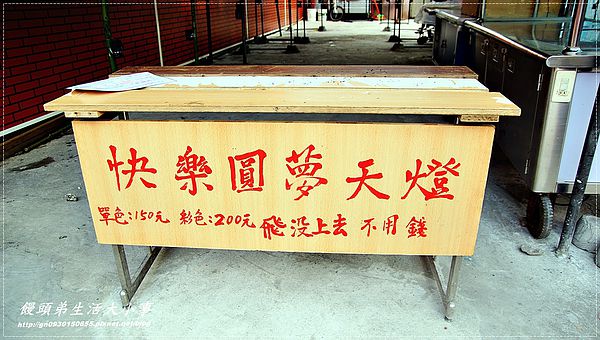 快樂圓夢天燈
單色:150元 彩色:200元 飛没上去 不用錢
饅頭弟生活大小事